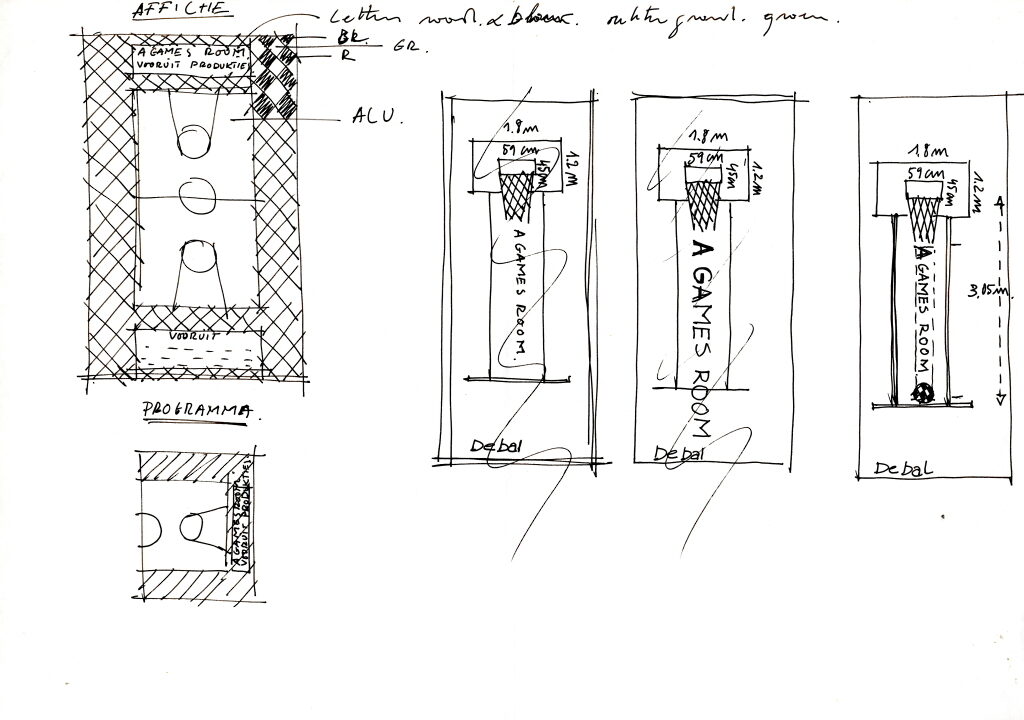 AFFICHE
Letters rood. & blauw. achtergrond. groen.
BR.
GR.
R
A GAMES ROOM.
VOORUIT PRODUKTIE
ALU.
VOORUIT
PROGRAMMA.
A GAMES ROOM.
VOORUIT PRODUKTIES
1.8m
59cm
45cm
1.2m
A GAMES ROOM.
Debal
1.8m
59cm
45cm
1.2m
A GAMES ROOM
Debal
1.8m
59cm
45cm
1.2m
A GAMES ROOM
3.05m.
Debal